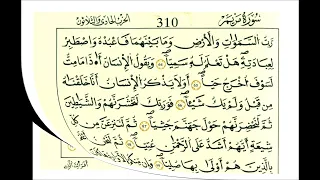 سُورَةُ مَرْيَم 310 الحزب الحادي والثلاثون
رَّبُّ السَّمَٰوَٰتِ وَالْأَرْضِ وَمَا بَيْنَهُمَا فَاعْبُدْهُ وَاصْطَبِرْ
لِعِبَٰدَتِهِۦ هَلْ تَعْلَمُ لَهُۥ سَمِيًّا ۝ وَيَقُولُ الْإِنسَٰنُ أَءِذَا مَا مِتُّ
لَسَوْفَ أُخْرَجُ حَيًّا ۝ أَوَلَا يَذْكُرُ الْإِنسَٰنُ أَنَّا خَلَقْنَٰهُ
مِن قَبْلُ وَلَمْ يَكُ شَيْـًٔا ۝ فَوَرَبِّكَ لَنَحْشُرَنَّهُمْ وَالشَّيَٰطِينَ
ثُمَّ لَنُحْضِرَنَّهُمْ حَوْلَ جَهَنَّمَ جِثِيًّا ۝ ثُمَّ لَنَنزِعَنَّ مِن كُلِّ
شِيعَةٍ أَيُّهُمْ أَشَدُّ عَلَى الرَّحْمَٰنِ عِتِيًّا ۝ ثُمَّ لَنَحْنُ
بِالَّذِينَ هُمْ أَوْلَىٰ بِهَا صِلِيًّا ۝ وَإِن مِّنكُمْ